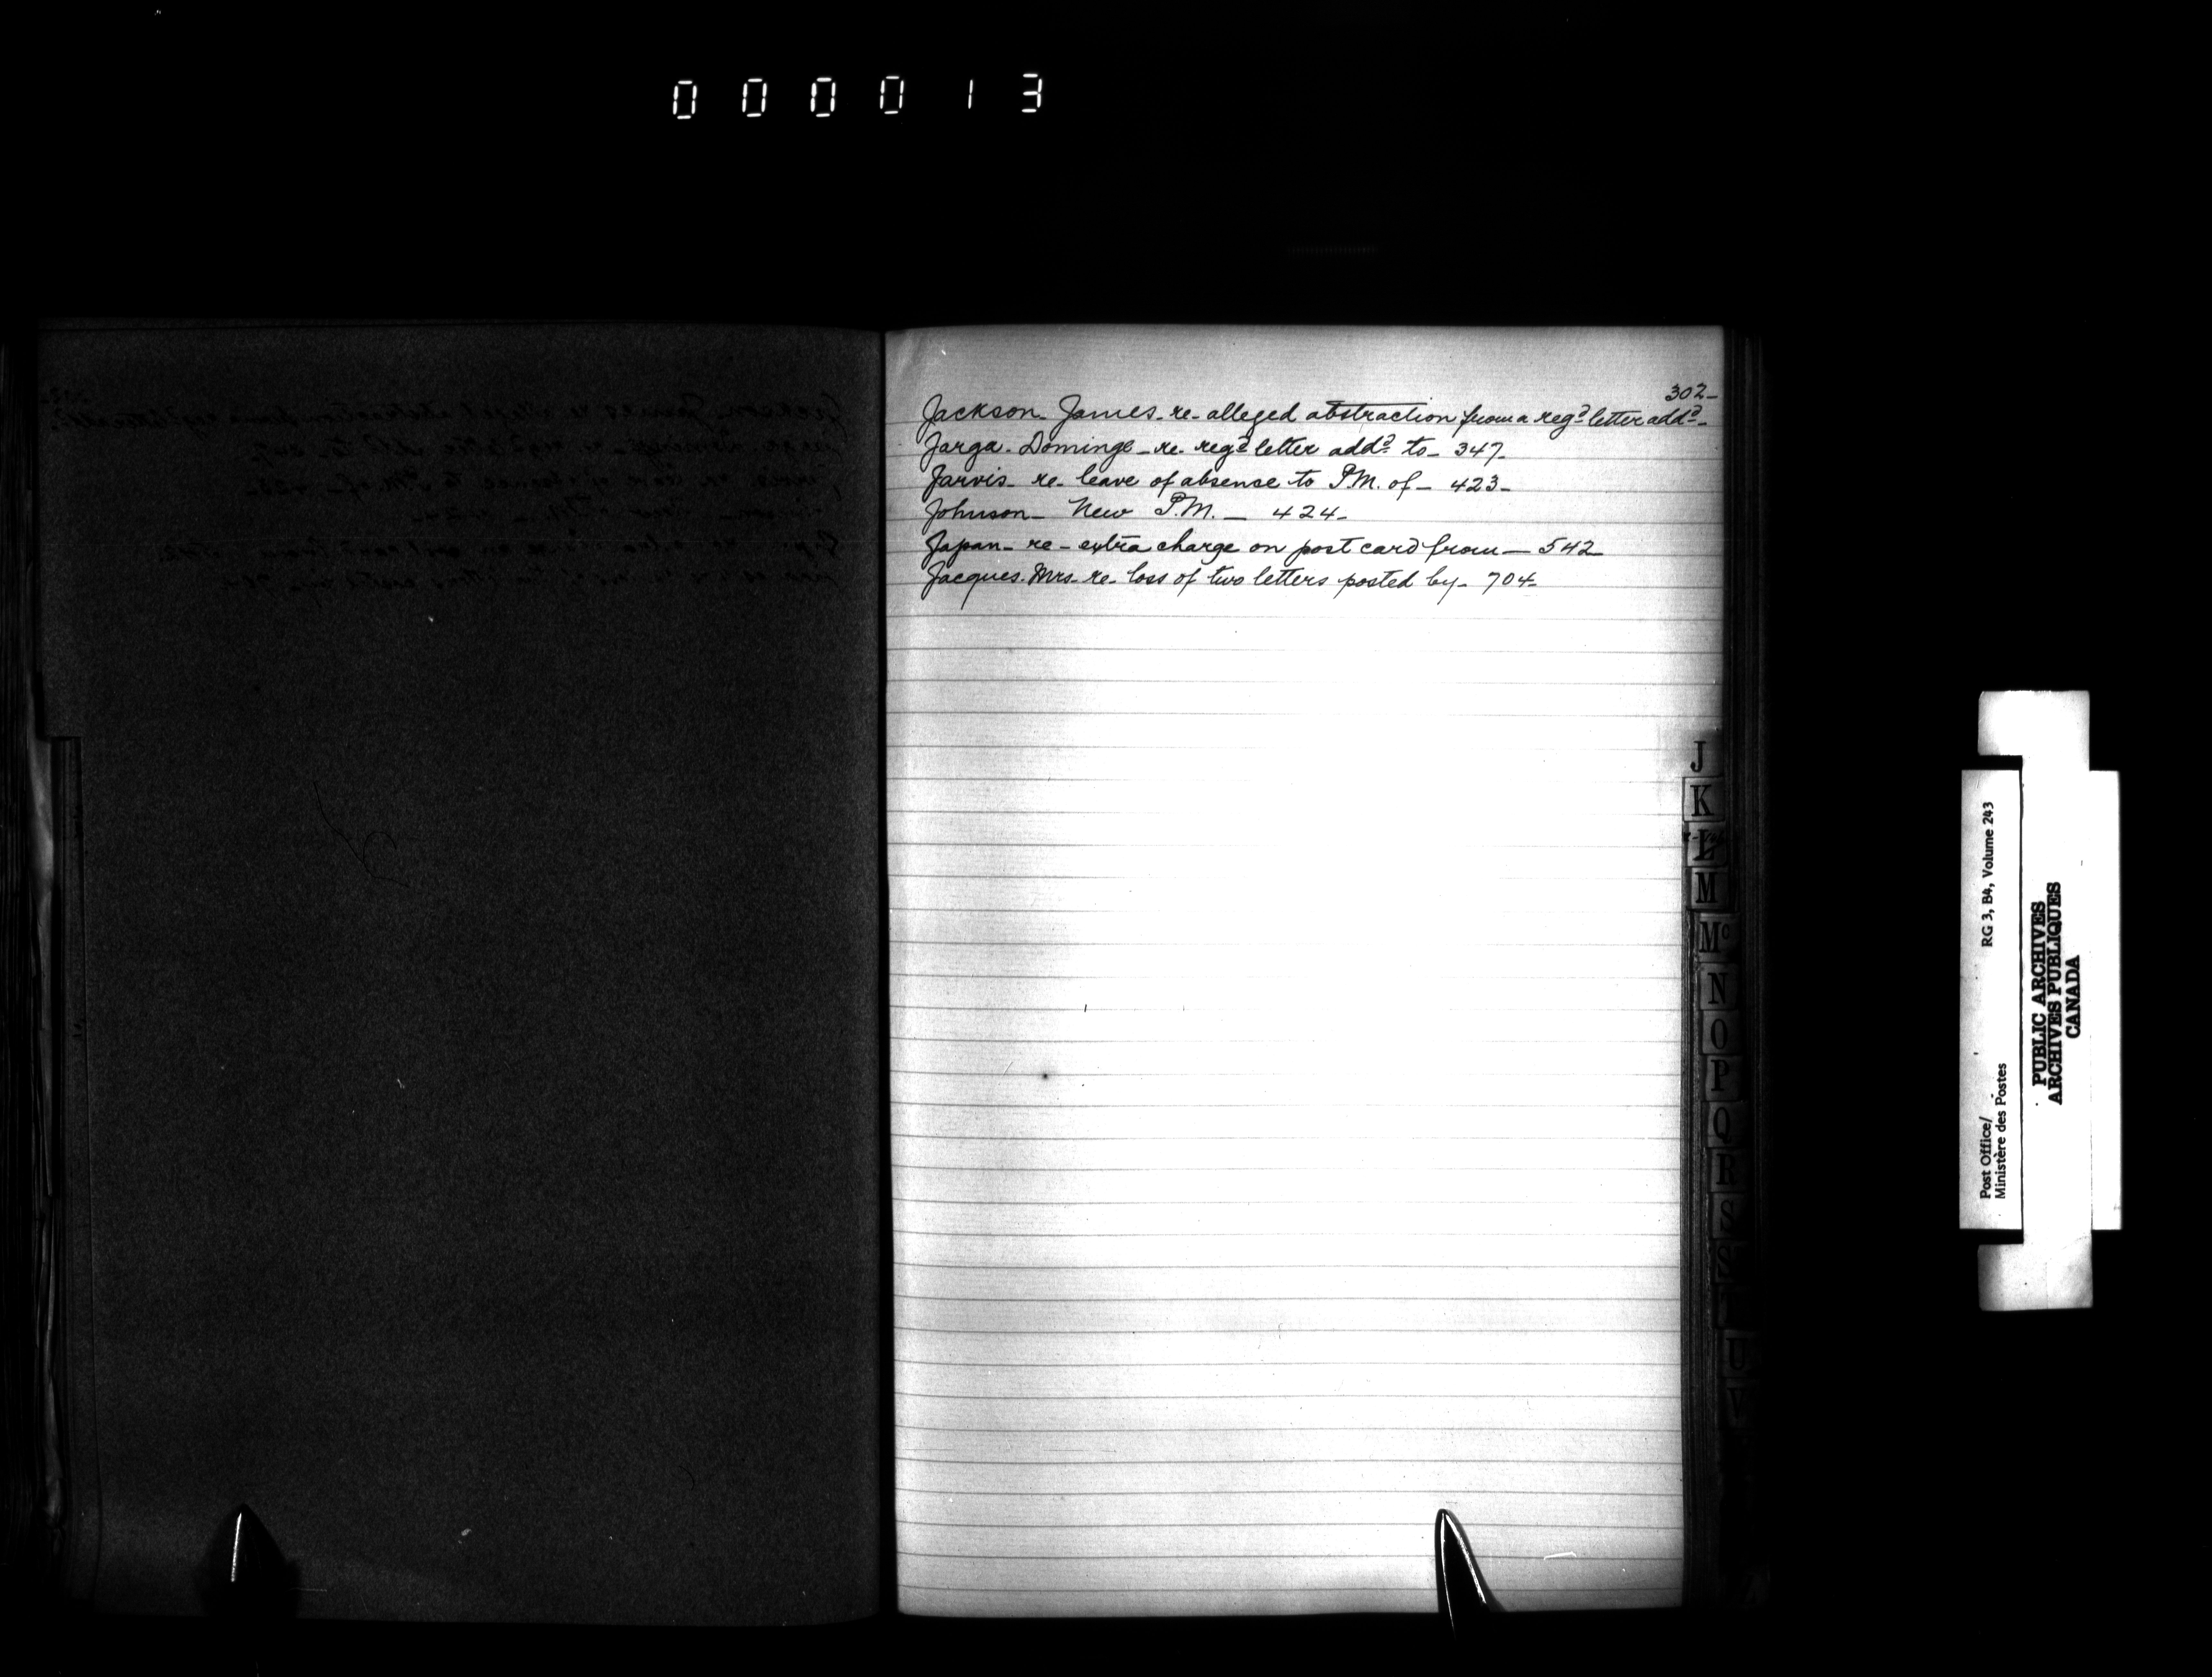 000013
302-
Jackson- James- re- alleged abstraction from a regd letter addd-
Jarga- Domingo- re- regd letter addd to- 347-
Jarvis- re- leave of absense to P.M. of- 423-
Johnson- New P.M.- 424-
Japan- re- extra charge on post card from- 542-
Jacques- Mrs- re- loss of two letters posted by- 704-
J
K
L
M
Mc
N
O
P
Q
R
S
S
T
U
V
RG 3, B4, Volume 243
Post Office/
Ministère des Postes
PUBLIC ARCHIVES
ARCHIVES PUBLIQUES
CANADA